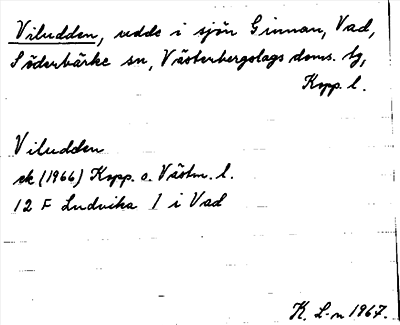 Viludden, udde i sjön Ginnan, Vad,
Söderbärke sn, Västerbergslags doms. tg,
Kopp. l.
Viludden
ek (1966) Kopp. o. Västm. l.
12 F Ludvika 1 i Vad
K. L-n 1967.